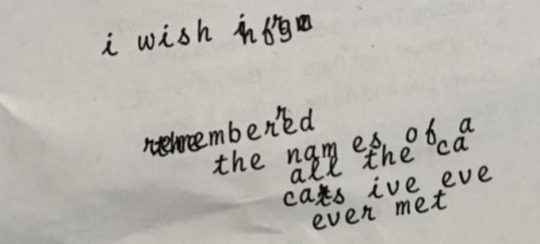 i wish
remembered
the names of a
all the ca
cats ive eve
ever met